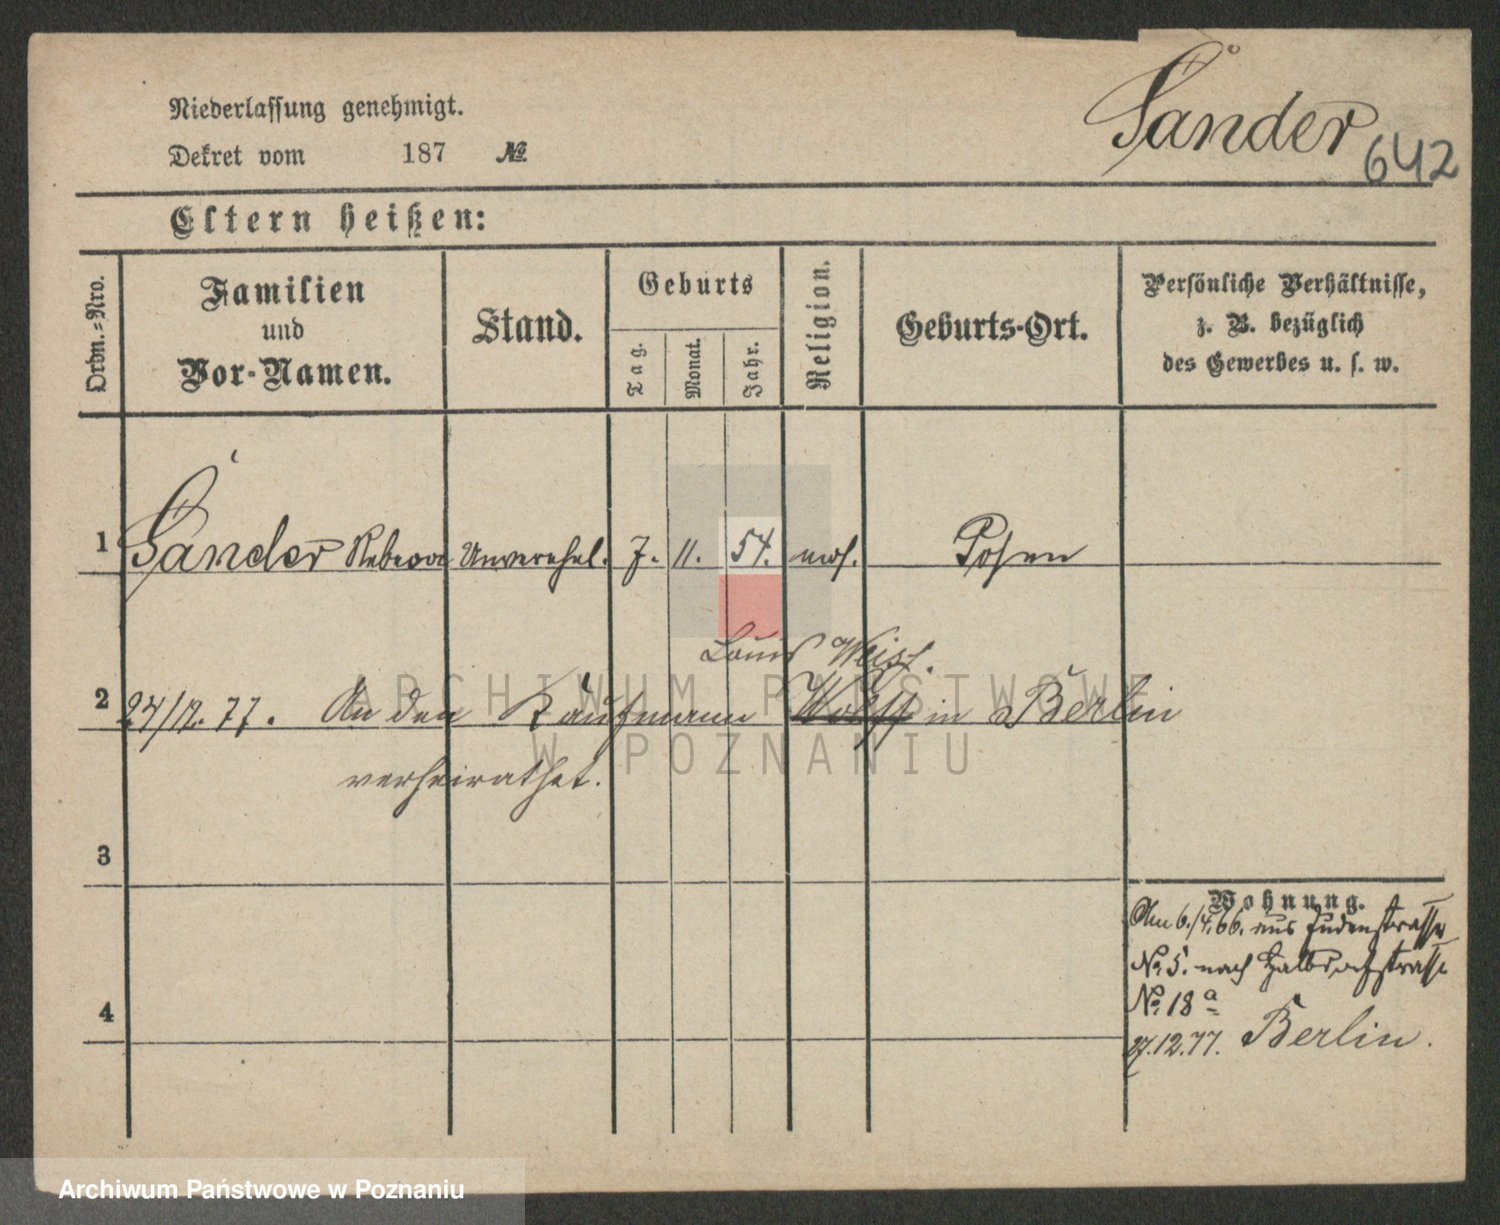 Sander 642
Niederlassung genehmigt.
Dekret vom 187 №
Eltern heißen:
Ordn.=Nro.
Familien
und
Vor-Namen.
Stand.
Geburts
Tag.
Monat.
Jahr.
Religion.
Geburts-Ort.
Persönliche Verhältnisse,
z. B. bezüglich
des Gewerbes u. s. w.
1 Sander Rebecca Unverehel. 7. 11. 54. mos. Posen
Louis Weiss.
2 24/12. 77. An den Kaufmann Wolff in Berlin
verheirathet.
3
4
Wohnung.
Am 6./4. 66. aus Judenstrasse
№ 5. nach Halbdorfstrasse
№ 18 a
27.12.77. Berlin.
ARCHIWUM PAŃSTWOWE
W POZNANIU
Archiwum Państwowe w Poznaniu